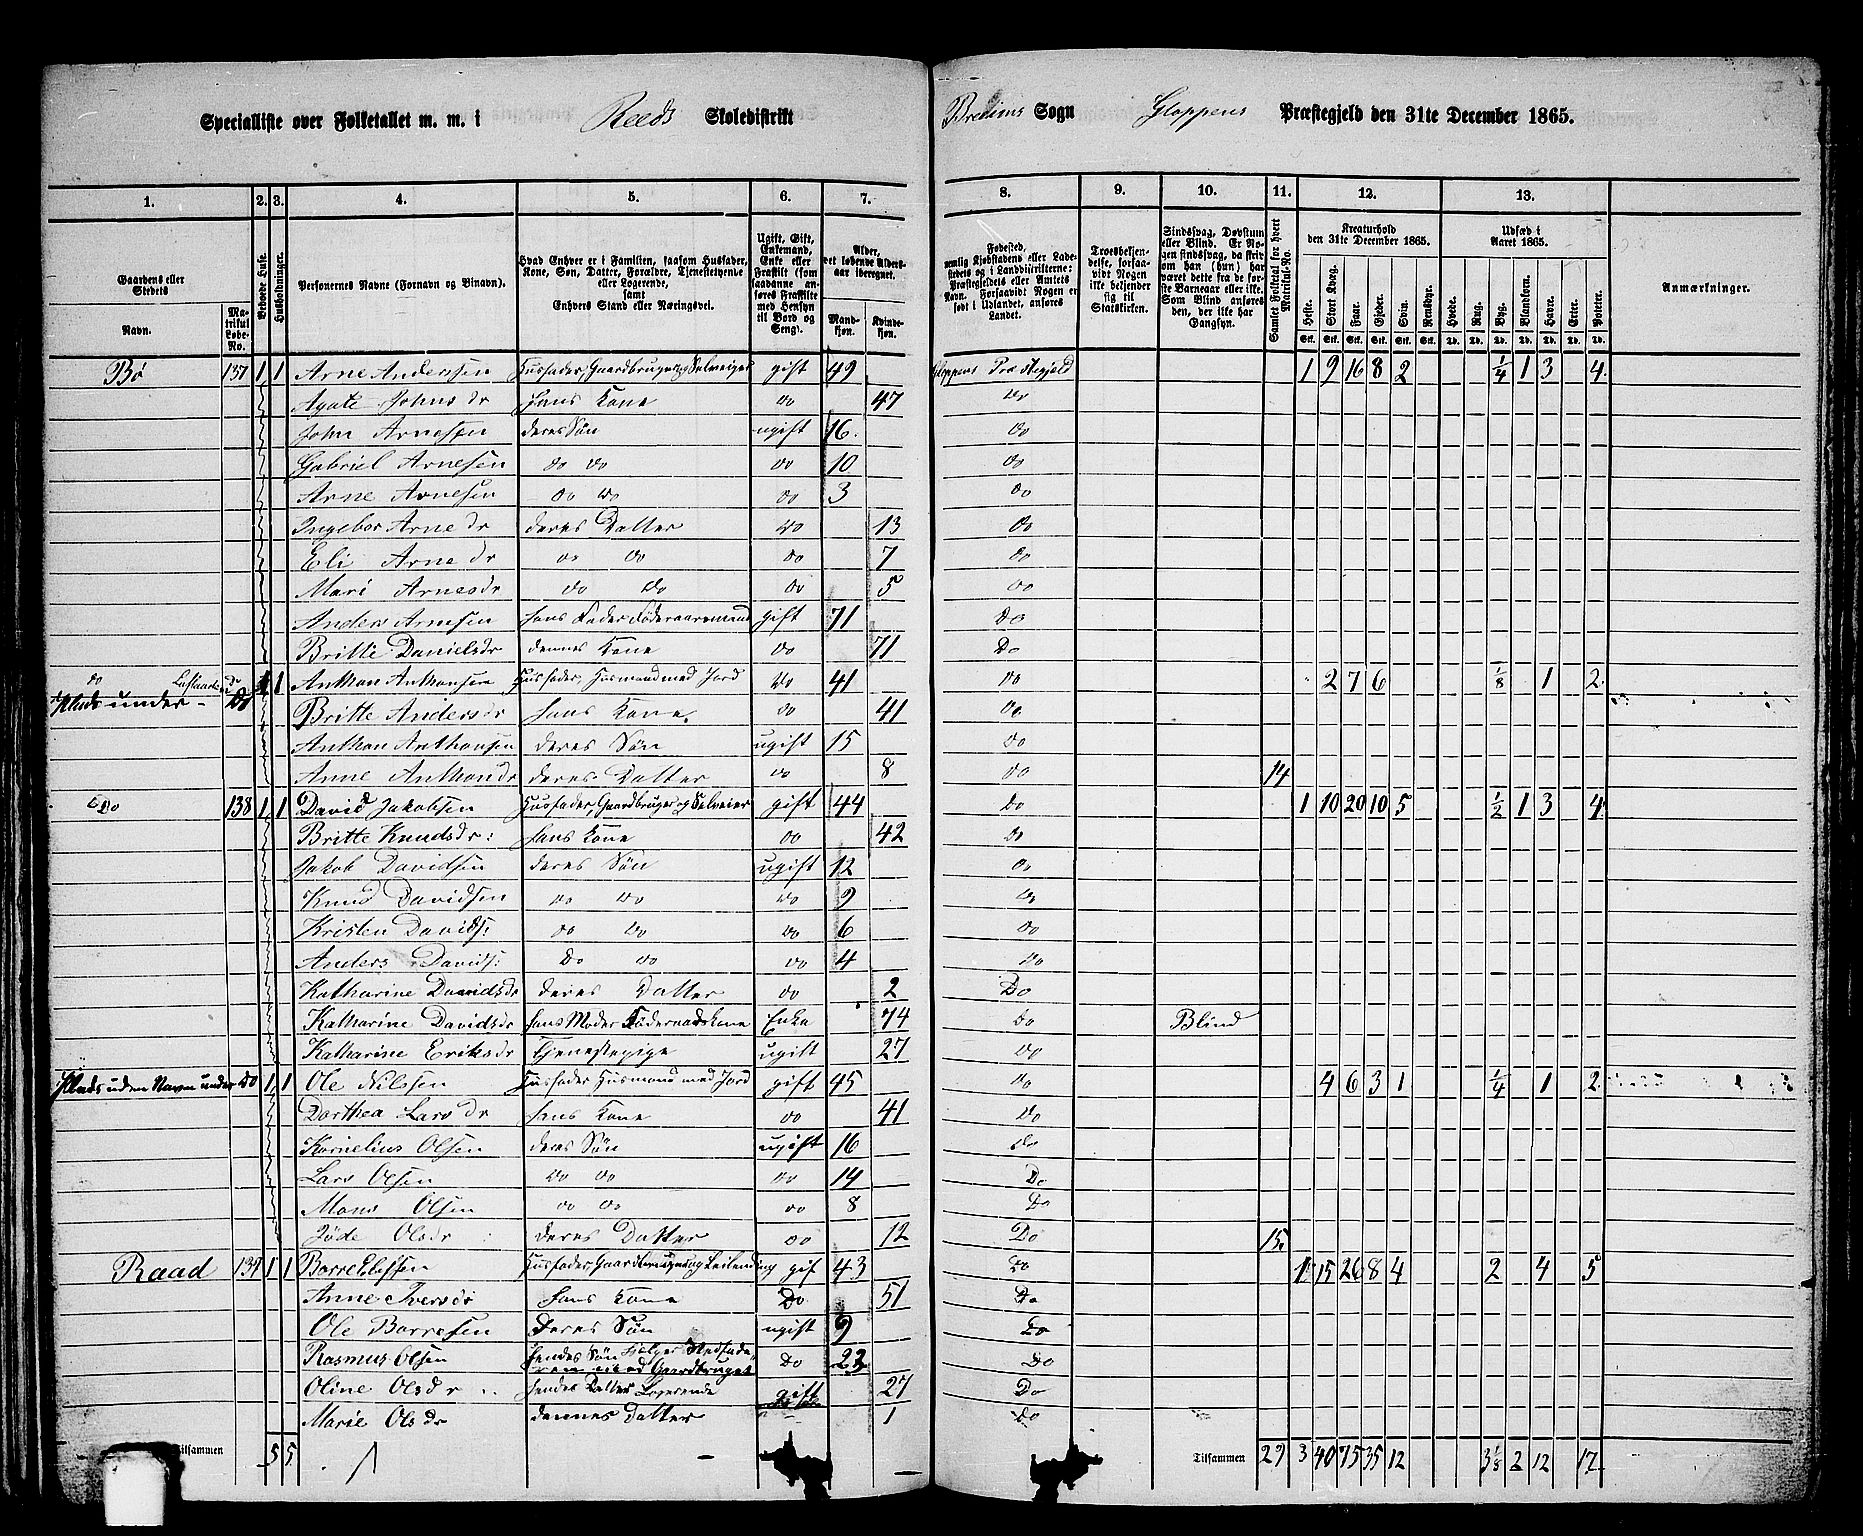 Specialliste over Folketallet m. m. i Reeds Skoledistrikt Breims Sogn Gloppens Præstegjeld den 31te December 1865.
1. 2. 3. 4. 5. 6. 7. 8. 9. 10. 11. 12. 13.
Gaardens eller Stedets
Navn.
Matrikul Løbe-No.
Beboede Huse.
Husholdninger.
Personernes Navne (Fornavn og Binavn).
Hvad Enhver er i Familien, saasom Husfader, Kone, Søn, Datter, Forældre, Tjenestetyende eller Logerende, samt Enhvers Stand eller Næringsvei.
Ugift, Gift, Enkemand, Enke eller Fraskilt (som saadanne anføres Fraskilte med Hensyn til Bord og Seng).
Alder, det løbende Aldersaar iberegnet.
Mandkjøn. Kvindekjøn.
Fødested, nemlig Kjøbstadens eller Ladestedets og i Landdistrikterne: Præstegjeldets eller Amtets Navn. Forsaavidt Nogen er født i Udlandet, anføres Landet.
Troesbekjendelse, forsaavidt Nogen ikke bekjender sig til Statskirken.
Sindssvag, Døvstum eller Blind. Er Nogen sindssvag, da skriv om han (hun) har været dette fra de første Barneaar eller ikke. Som Blind anføres den, der ikke har Gangsyn.
Samlet Folketal for hvert Matrikul-No.
Kreaturhold den 31te December 1865.
Heste. Stort Kvæg. Faar. Gjeder. Svin. Rensdyr.
Udsæd i Aaret 1865.
Hvede. Rug. Byg. Blandkorn. Havre. Erter. Poteter.
Anmærkninger.
Bø 137 1 1 Arne Andersen Husfader, Gaardbruger og Selveier gift 49 Gloppens Præstegjeld 1 9 16 8 2 1/4 1 3 4
Agate Johnsdr Hans Kone do 47 do
John Arnesen deres Søn ugift 16 do
Gabriel Arnesen do do do 10 do
Arne Arnesen do do do 3 do
Ingebor Arnedr deres Datter do 13 do
Eli Arnedr do do do 7 do
Mari Arnesdr do do do 5 do
Anders Arnesen hans Fader Føderaadsmand gift 71 Do
Britte Danielsdr dennes Kone do 71 Do
do
Plads under do 1 1 Anthon Anthonsen Husfader, Husmand med Jord do 41 do 2 7 6 1/8 1 2
Britte Andersdr hans Kone do 41 do
Anthon Anthonsen deres Søn ugift 15 do
Anne Anthondr deres Datter do 8 do 14
Do 138 1 1 David Jakobsen Husfader, Gaardbruger og Selveier gift 44 Do 1 10 20 10 5 1/2 1 3 4
Britte Knudsdr: hans Kone do 42 do
Jakob Davidsen deres Søn ugift 12 do
Knud Davidsen do do do 9 do
Kristen Davids: do do do 6 do
Anders Davids: Do do do 4 do
Katharine Davidsdr deres Datter do 2 Do
Katharine Davidsdr hans Moder Føderaadskone Enke 74 Do Blind
Katharine Eriksdr Tjenestepige ugift 27 do
Plads uden Navn under do 1 1 Ole Nilssen Husfader Husmand med Jord gift 45 do 4 6 3 1 1/4 1 2
Dorthea Larsdr hans Kone do 41 do
Kornelius Olsen deres Søn ugift 16 do
Lars Olsen do do do 14 Do
Mons Olsen do do do 8 Do
Jøde Olsdr deres Datter do 12 Do 15
Raad 139 1 1 Borre Elissen Husfader, Gaardbruger og Leilending gif 43 do 1 15 26 8 4 2 4 5
Anne Iversdr hans Kone Do 51 Do
Ole Borresen deres Søn ugift 9 Do
Rasmus Olsen hendes Søn Hjelper Stedfaderen med Gaardbruget Do 23 Do
Oline Olsdr hendes Datter Logerende gift 27 Do
Marie Olsdr dennes Datter 1 Do
Tilsammen 5 5 Tilsammen 29 3 40 75 35 12 3 1/8 2 12 17